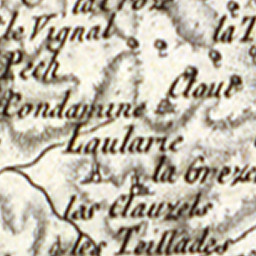 la Croix
le Vignal
la T
Pech
Claux
Condamine
Laularie
la Greze
las Clauzels
les Teillades